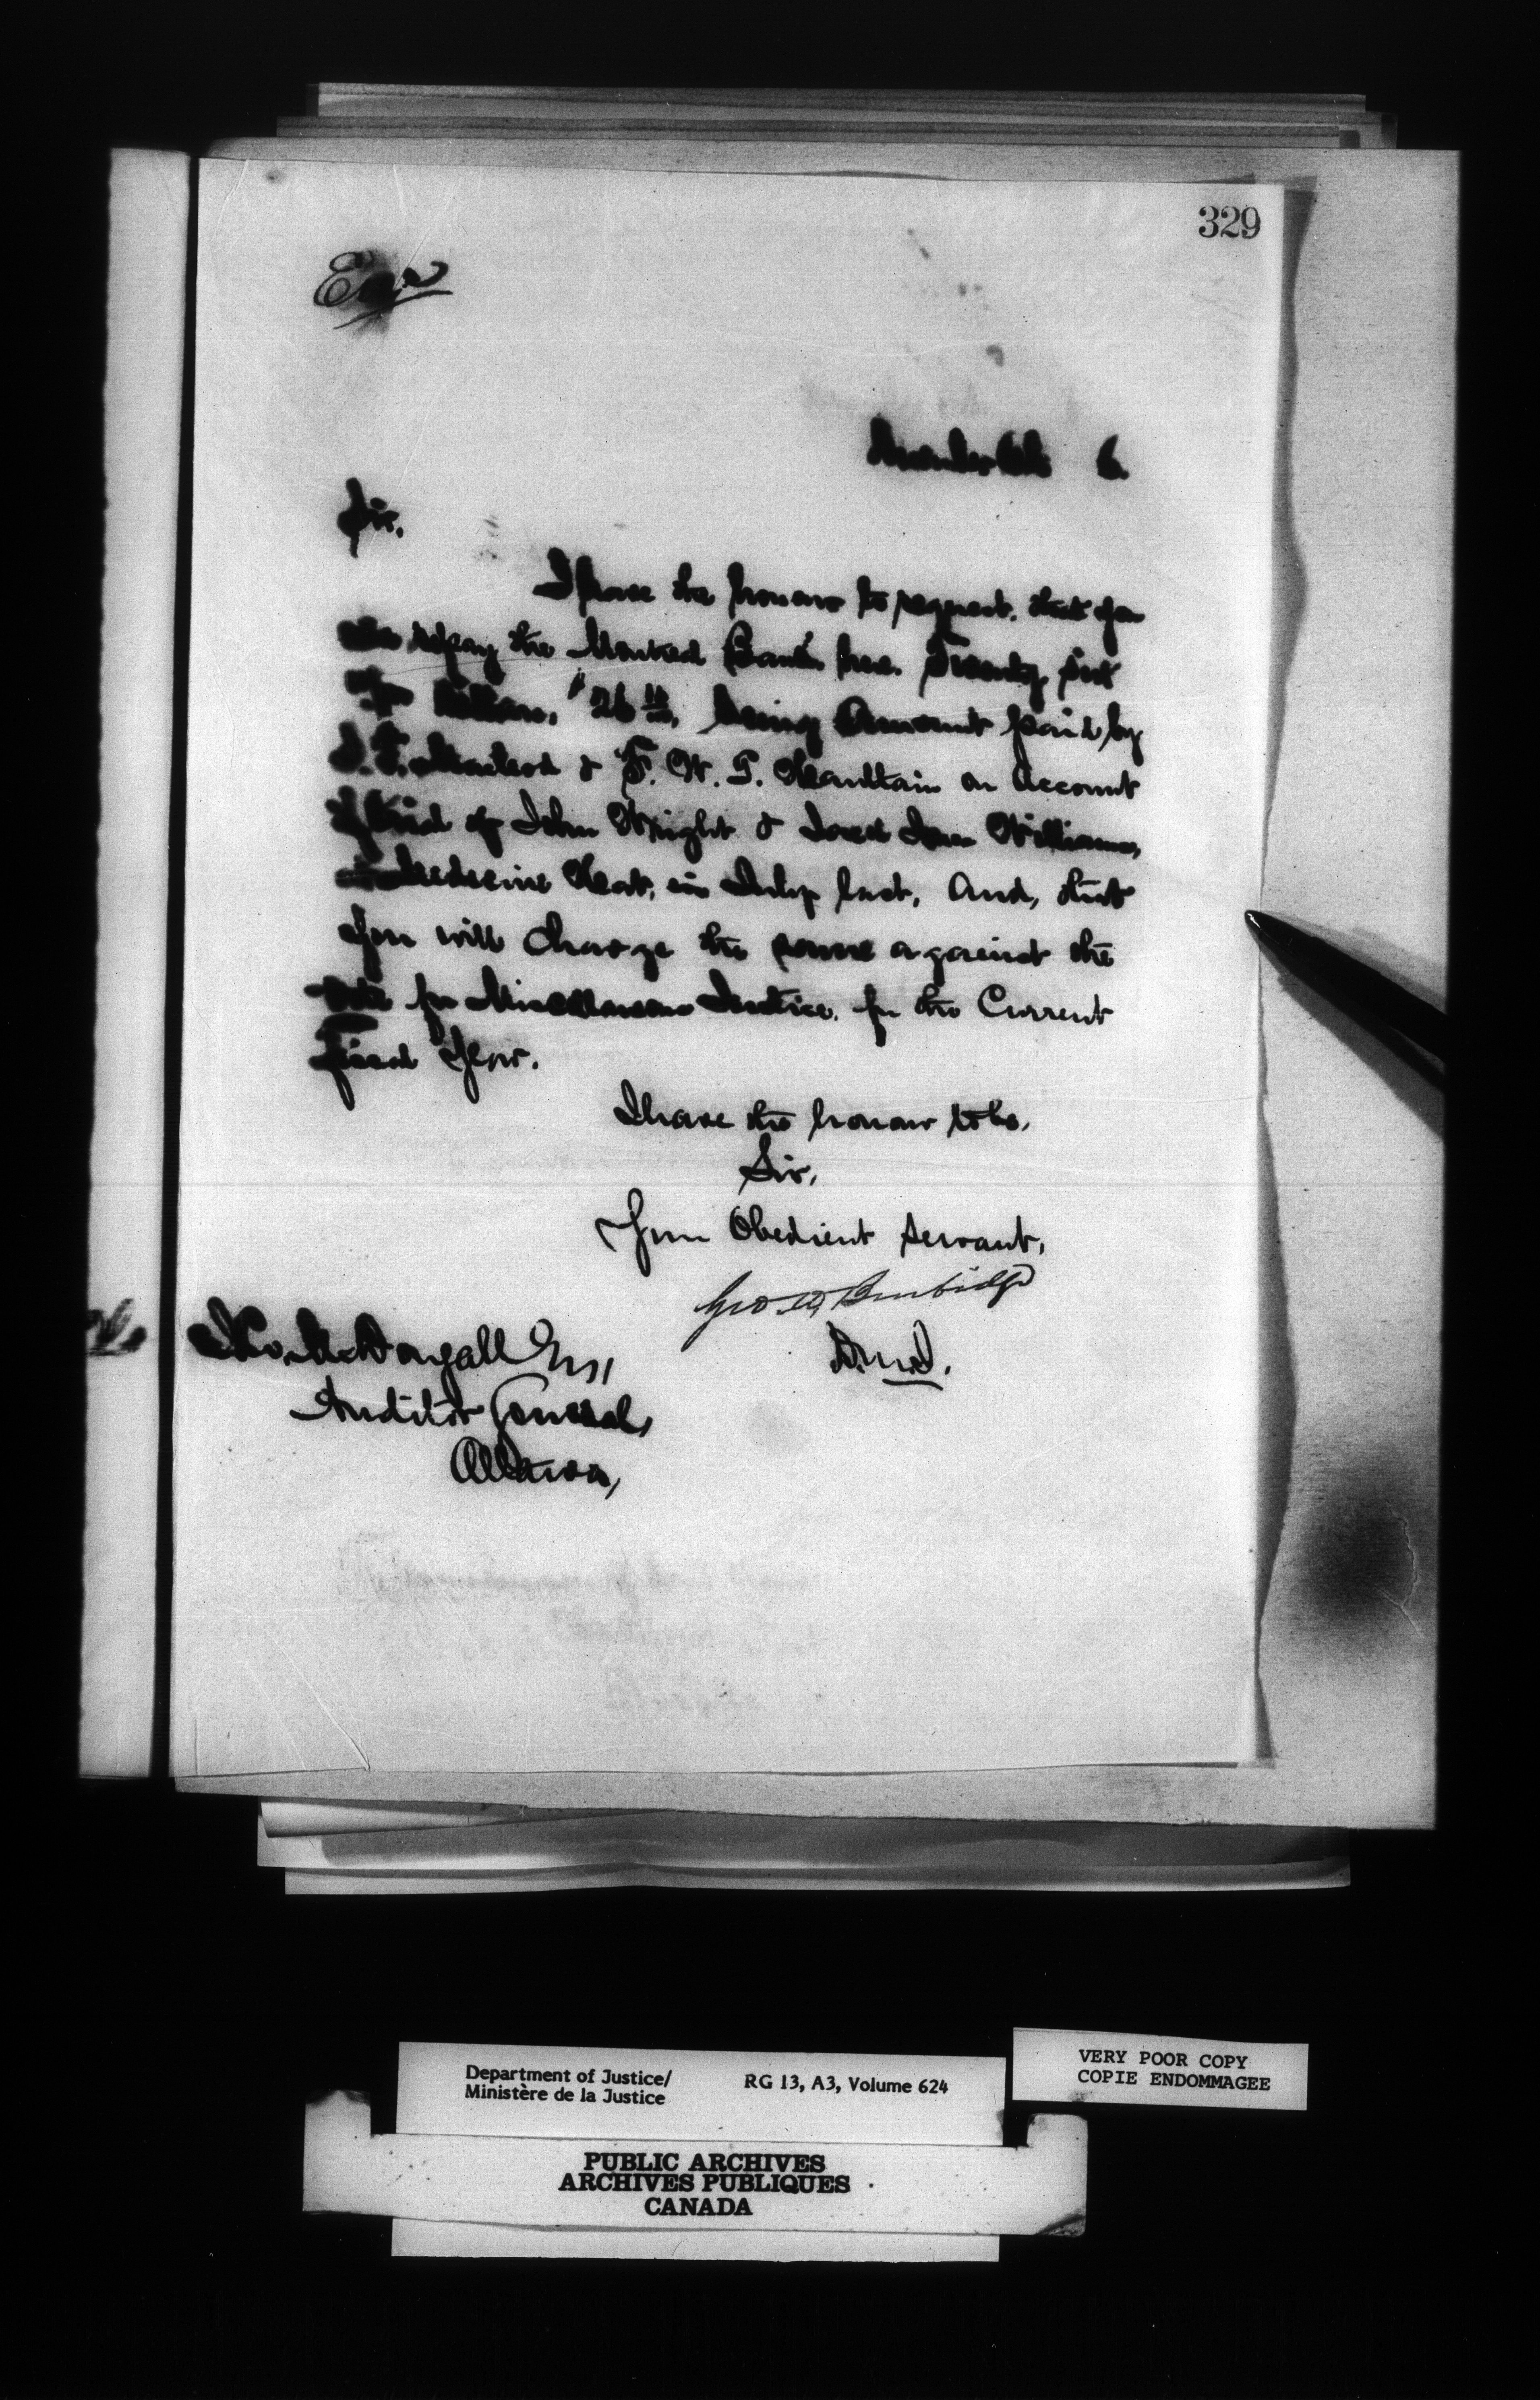 329
November 6th 6.
Sir,
I have the honour to request, that you
repay the Montreal Bank here Twenty six
26 10/100, being Amount paid by
Macleod & F. W. G. Haultain on Account
of trial of John Wright & Williams,
Medecine Hat, in July last, And, that
you will charge the same against the
Vote for Miscellaneous Justice, for the Current
fiscal Year.
I have the honour to be,
Sir,
Your Obedient Servant,
Geo. W. Burbidge
D.M.J.
McDougall Esq,
Auditor General,
Ottawa,
Department of Justice/
Ministère de la Justice
RG 13, A3, Volume 624
VERY POOR COPY
COPIE ENDOMMAGEE
PUBLIC ARCHIVES
ARCHIVES PUBLIQUES
CANADA